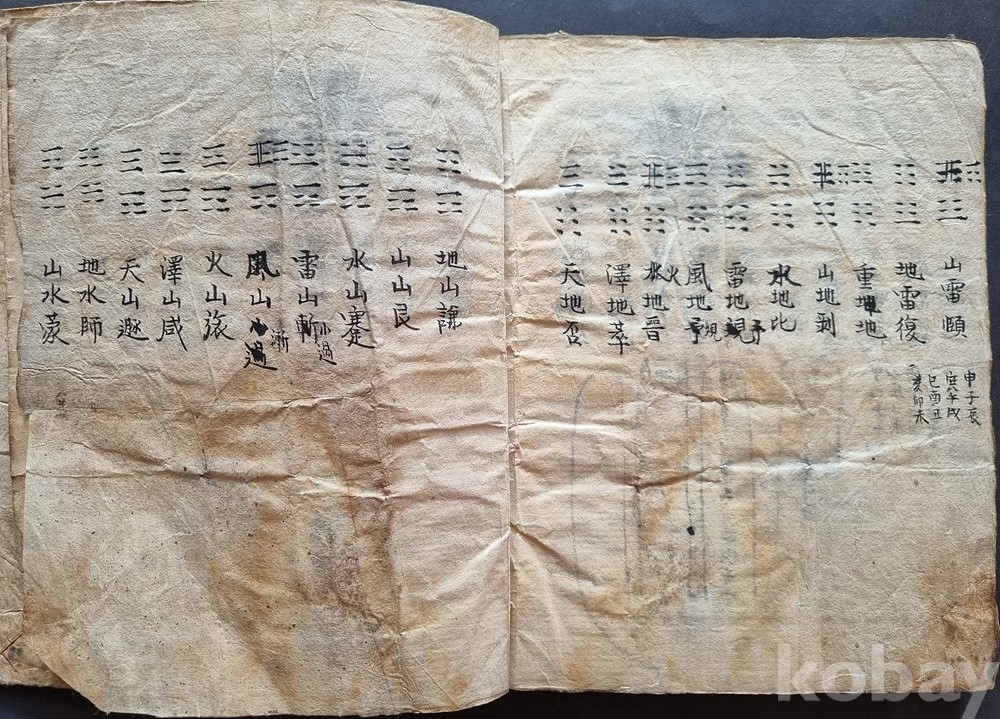 山雷頤
地雷復
重地地
山地剥
水地比
雷地現
予
風地予
現
水地晋
火
澤地萃
天地否
申子辰
寅午戌
巳酉丑
亥卯未
地山謙
山山艮
水山蹇
雷山斬
小過
風山小過
漸
火山旅
澤山咸
天山遯
地水師
山水蒙
kobay